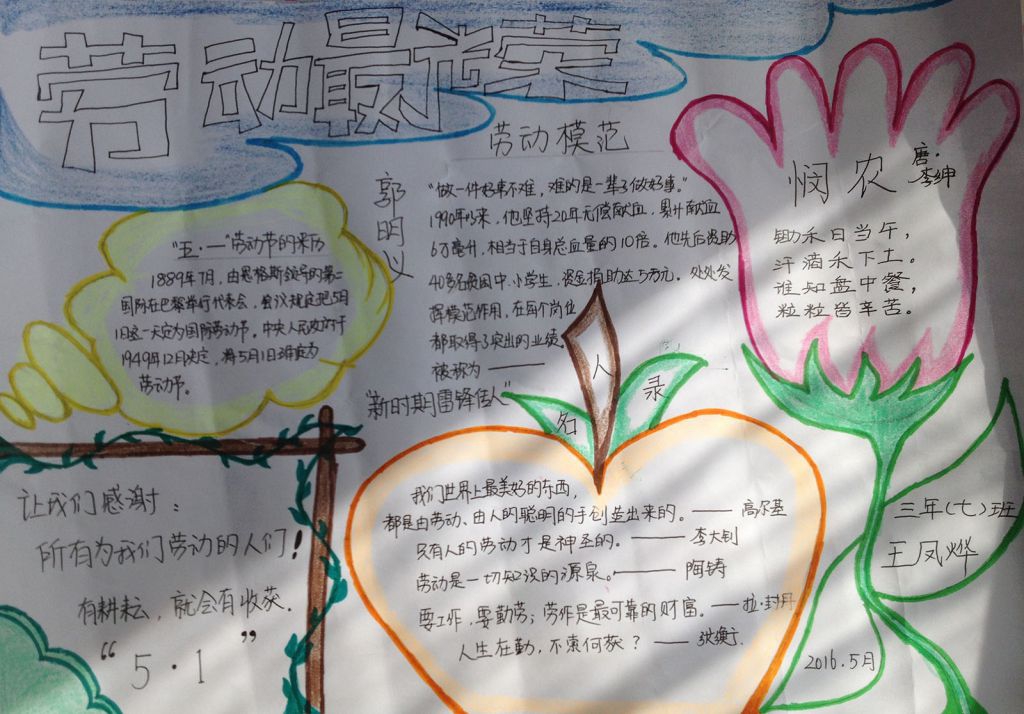 劳动最光荣
"五·一"劳动节的来历
1889年7月，由恩格斯领导的第二
国际在巴黎举行代表会，会议规定把5月
1日这一天定为国际劳动节。中央人民政府于
1949年12月决定，将5月1日准定为
劳动节。
劳动模范
郭明义
"做一件好事不难，难的是一辈子做好事。"
1990年以来，他坚持20年无偿献血，累计献血
6万毫升，相当于自身总血量的10倍。他先后资助
40多名贫困中、小学生，资金捐助达5万元。处处发
挥模范作用，在每个岗位
都取得了突出的业绩。
被称为——
"新时期雷锋传人"
悯农
唐·
李绅
锄禾日当午，
汗滴禾下土。
谁知盘中餐，
粒粒皆辛苦。
名人录
我们世界上最美好的东西，
都是由劳动、由人的聪明的手创造出来的。——高尔基
只有人的劳动才是神圣的。——李大钊
劳动是一切知识的源泉。——陶铸
要工作，要勤劳；劳作是最可靠的财富。——拉·封丹
人生在勤，不索何获？——张衡
让我们感谢：
所有为我们劳动的人们！
有耕耘，就会有收获.
"5·1"
三年(七)班
王凤烨
2016.5月